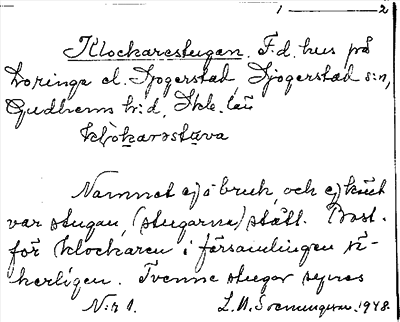 1 — 2
Klockarestugan. F.d. hus på
Doringa el. Sjogerstad, Sjogerstad s:n,
Gudhems h:d, Skb. län
Namnet ej i bruk, och ej känt
var stugan (stugorna) stått. Bost.
för klockaren i församlingen sä-
kerligen. Tvenne stugor synes
N:r 1. 1948.